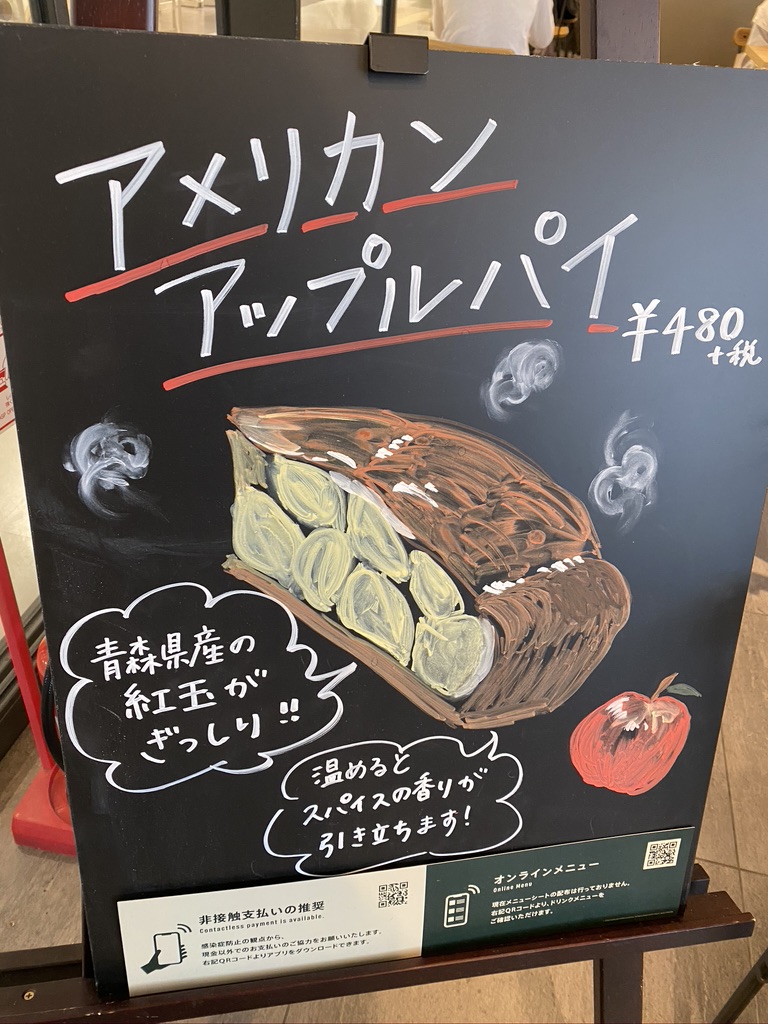 アメリカン
アップルパイ
¥480
+税
青森県産の
紅玉が
ぎっしり!!
温めると
スパイスの香りが
引き立ちます!
非接触支払いの推奨
Contactless payment is available.
感染症防止の観点から、
現金以外でのお支払いのご協力をお願いいたします。
右記QRコードよりアプリをダウンロードできます。
オンラインメニュー
Online Menu
現在メニューシートの配布は行っておりません。
右記QRコードより、ドリンクメニューを
ご確認いただけます。